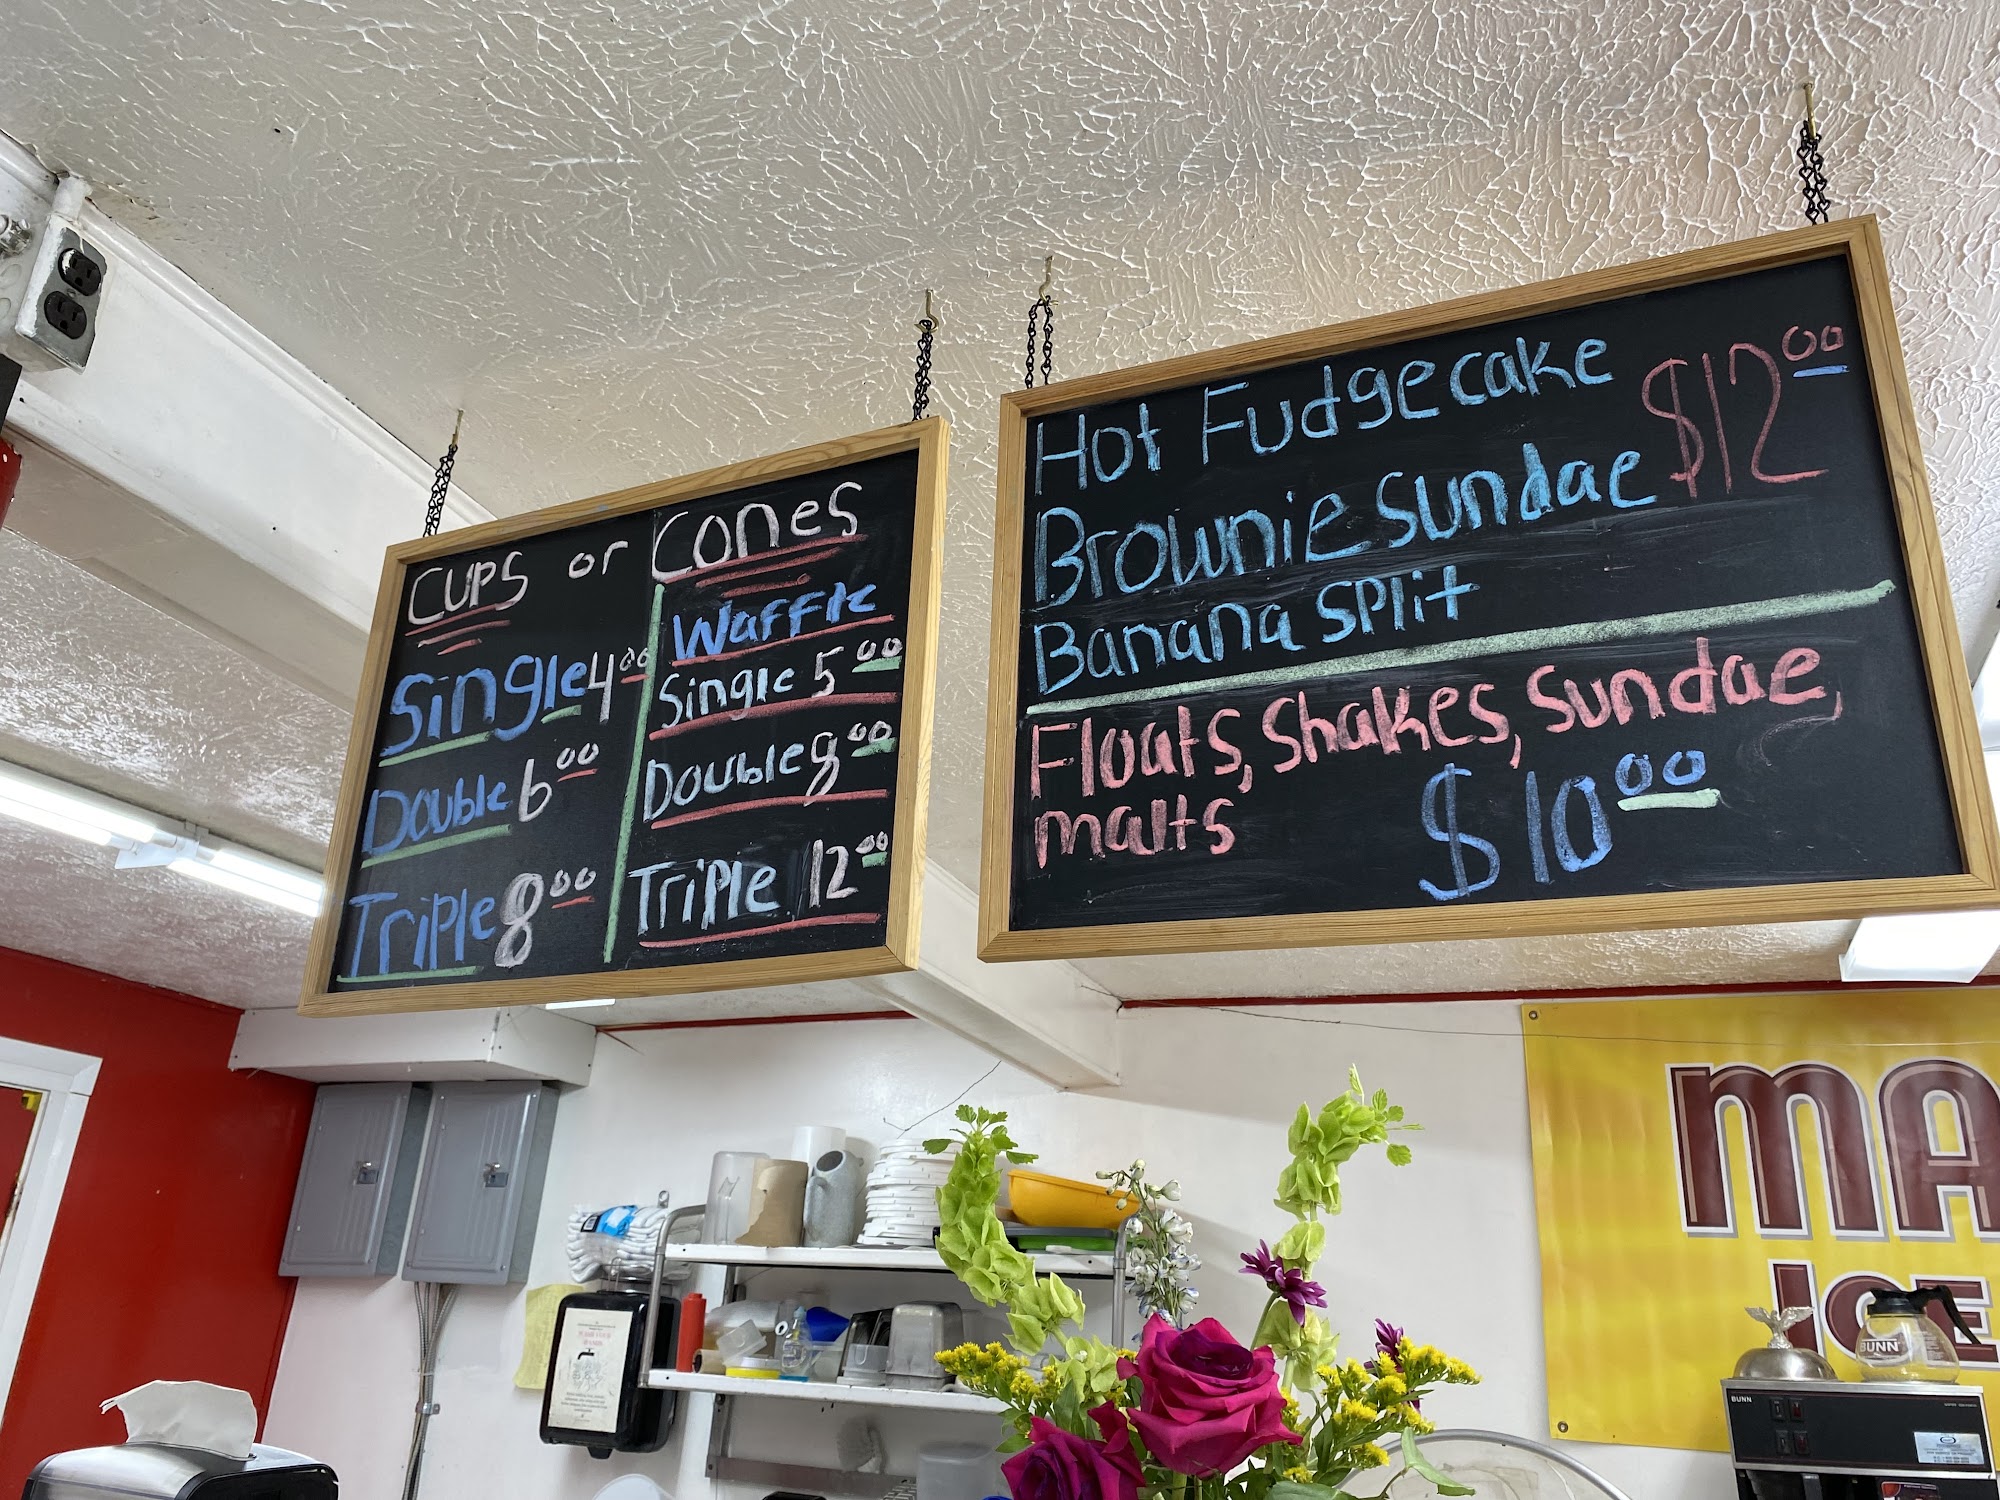 Cups or Cones
Single 4.00
Double 6.00
Triple 8.00
Waffle
Single 5.00
Double 8.00
Triple 12.00
Hot Fudgecake
$12.00
Brownie Sundae
Banana Split
Floats, Shakes, Sundae,
malts
$10.00
MA
ICE
BUNN
BUNN